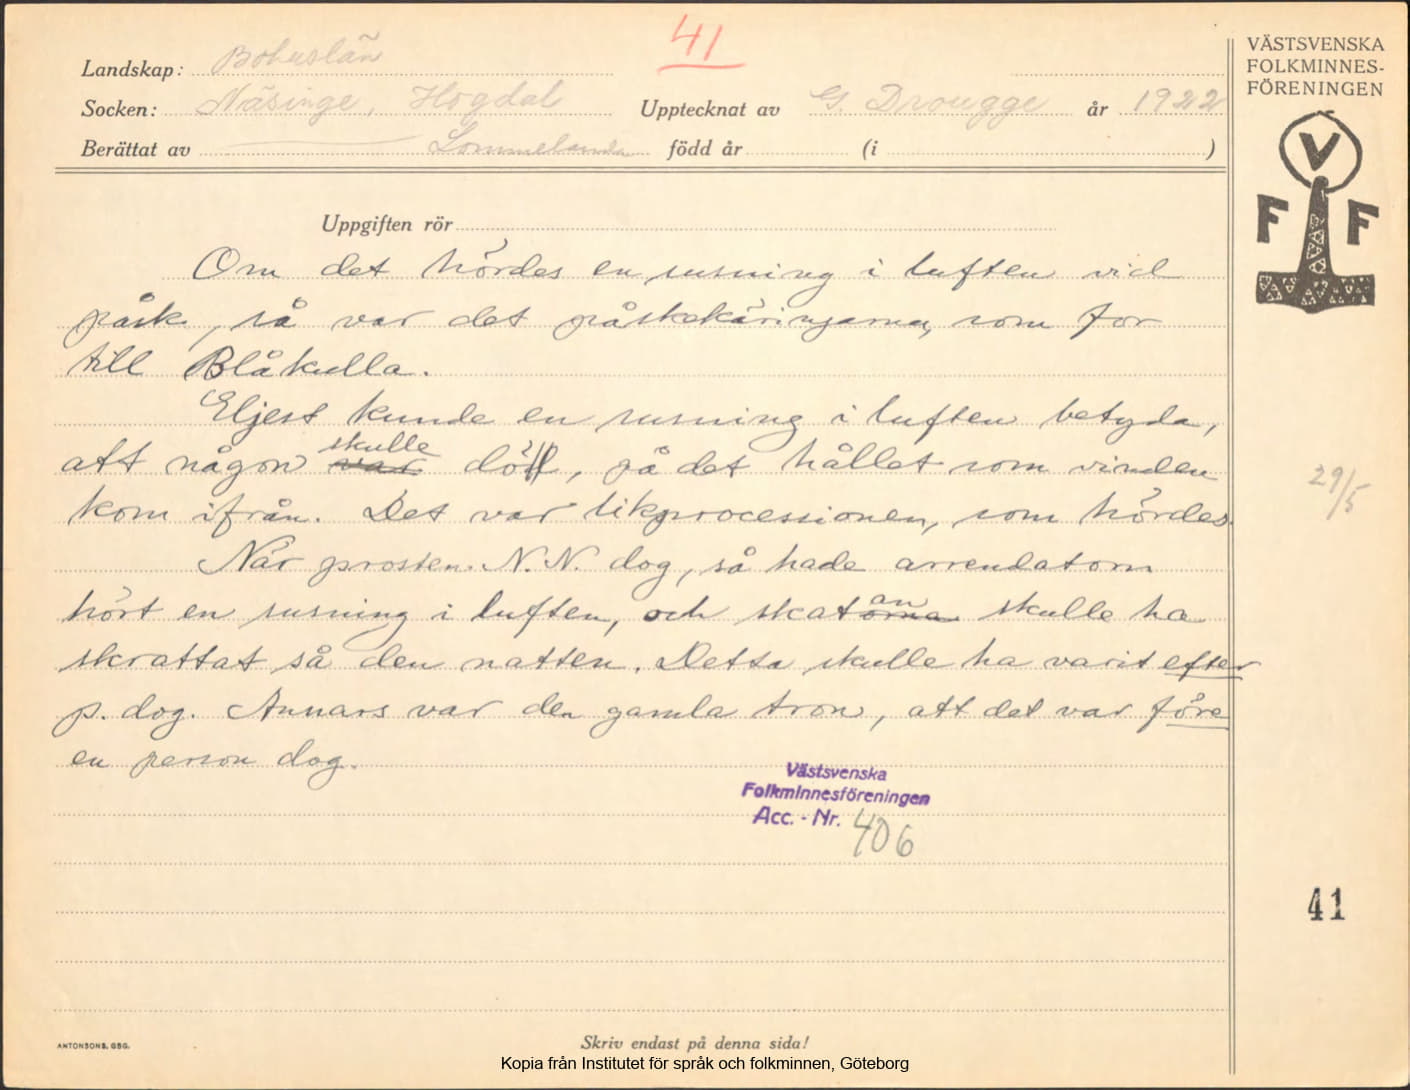 41
Landskap: Bohuslän
Socken: Näsinge, Hogdal Upptecknat av G. Drougge år 1922
Berättat av Lommelanda född år (i )
VÄSTSVENSKA
FOLKMINNES-
FÖRENINGEN
V
F F
Uppgiften rör
Om det hördes en susning i luften vid
påsk, så var det påskekäringarna, som for
till Blåkulla.
Eljest kunde en susning i luften betyda,
skulle
att någon var dött, på det hållet som vinden
kom ifrån. Det var likprocessionen, som hördes.
När prosten N. N. dog, så hade arrendatorn
an
hört en susning i luften, och skatorna skulle ha
skrattat så den natten. Detta skulle ha varit efter
p. dog. Annars var den gamla tron, att det var före
en person dog.
29/5
Västsvenska
Folkminnesföreningen
Acc. - Nr. 406
41
ANTONSONS, GBG.
Skriv endast på denna sida!
Kopia från Institutet för språk och folkminnen, Göteborg